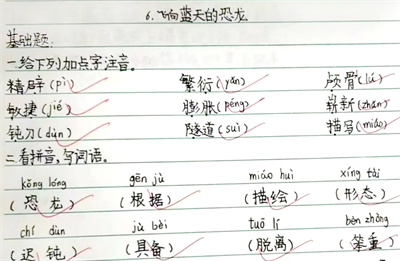 6.飞向蓝天的恐龙
基础题:
一.给下列加点字注音。
精辟(pì) 繁衍(yǎn) 颅骨(lú)
敏捷(jié) 膨胀(péng) 崭新(zhǎn)
钝刀(dùn) 隧道(suì) 描写(miáo)
二.看拼音,写词语。
kǒng lóng gēn jù miáo huì xíng tài
(恐龙) (根据) (描绘) (形态)
chí dùn jù bèi tuō lí bèn zhòng
(迟钝) (具备) (脱离) (笨重)